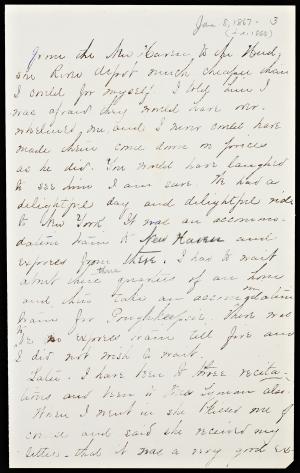 Jan. 8, 1867 - 3
from the New Haven to the Hud-
son River depot much cheaper than
I could for myself. I told him I
was afraid they would have over-
whelmed me and I never could have
made them come down on prices
as he did. You would have laughed
to see him I am sure. We had a
delightful day and delightful ride
to New York. It was an accommo-
dation train to New Haven and
express from there. I had to wait
about three quarters of an hour
there
and then take an accommodation
train for Poughkeepsie. There was
to be no express train till five and
I did not wish to wait.
Later. I have been to three recita-
tions and been in Miss Lyman also.
When I went in she kissed me of
course and said she received my
letter - that it was a very good ex-